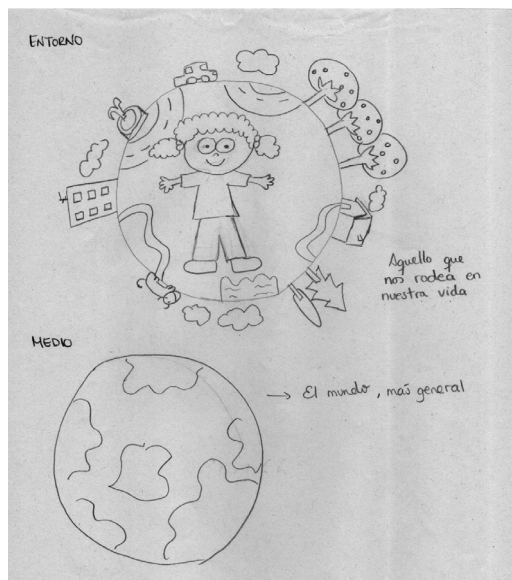 ENTORNO
Aquello que
nos rodea en
nuestra vida
MEDIO
→ El mundo, más general